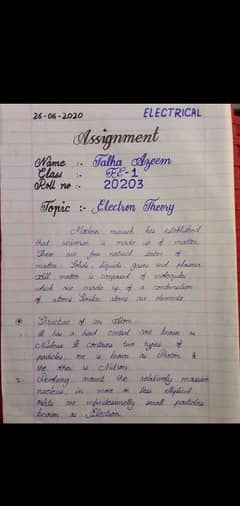 26-06-2020 ELECTRICAL
Assignment
Name :- Talha Azeem
Class :- FE-1
Roll no :- 20203
Topic :- Electron Theory
Modern has established
that universe is made up of matter.
There are four natural states of
matter. Solids, liquids, gases and plasma.
All matter is composed of molecules
which are made up of a combination
of atoms. Similar atoms are elements.
Structure of an Atom:-
It has a hard central core known as
It contains two types of
particles, one is known as Proton &
the other is
Revolving the relatively massive
nucleus, in more or less elliptical
are infinitesimally small particles
known as Electron.